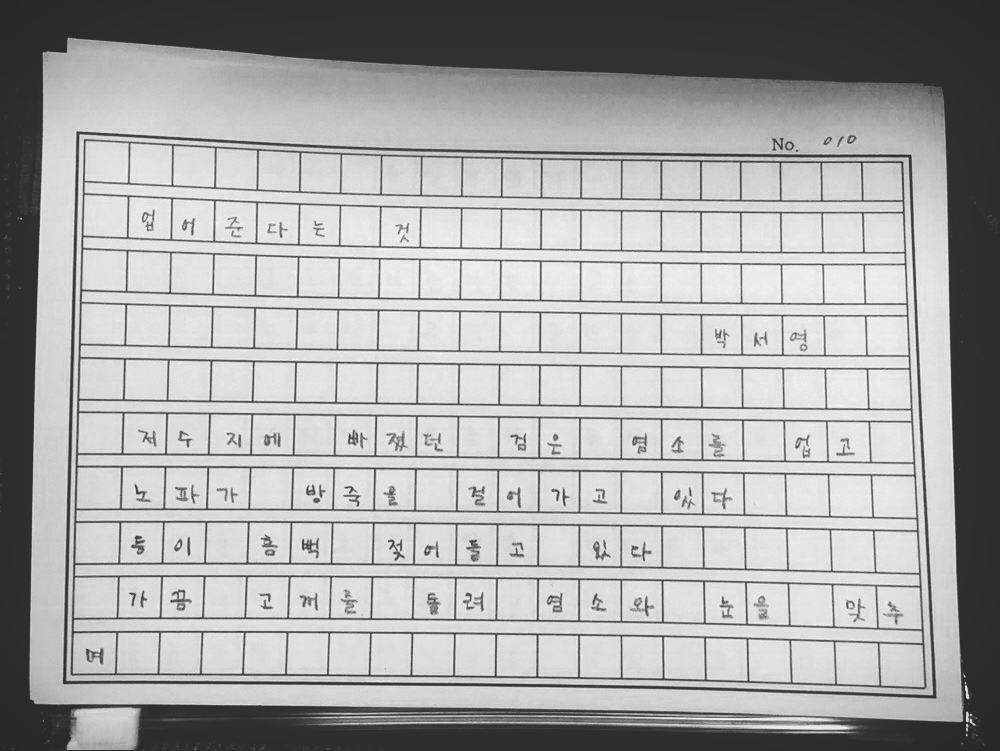 No. 010
업어준다는 것
박서영
저수지에 빠졌던 검은 염소를 업고
노파가 방죽을 걸어가고 있다
등이 흠뻑 젖어들고 있다
가끔 고개를 돌려 염소와 눈을 맞추
며